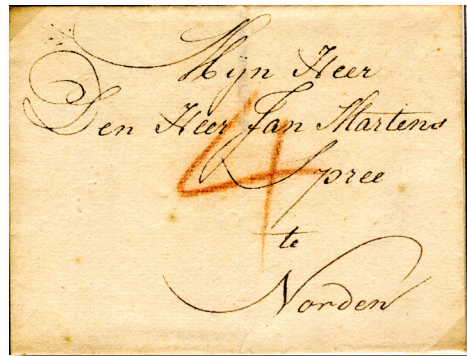 Mijn Heer
Den Heer Jan Martens
Spree
4
te
Norden